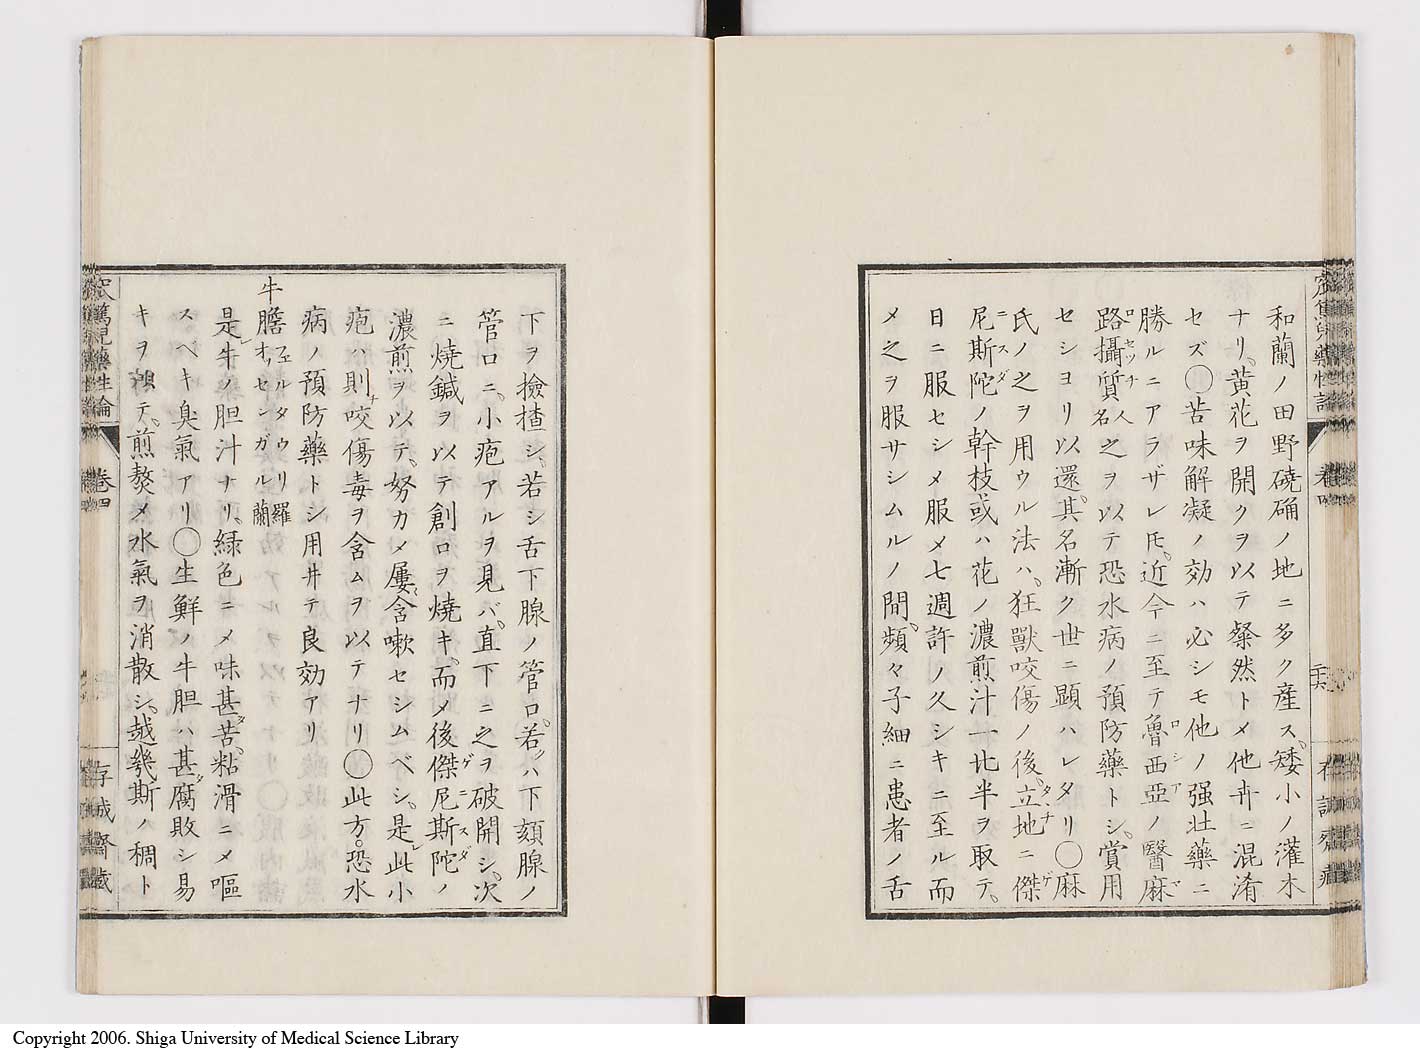 和蘭ノ田野磽确ノ地ニ多ク産ス、矮小ノ灌木
ナリ、黄花ヲ開クヲ以テ粲然トメ他卉ニ混淆
セズ〇苦味解凝ノ効ハ必シモ他ノ强壯藥ニ
勝ルニアラザレ𪜈、近今ニ至テ魯西亞ノ醫麻
路攝質人名之ヲ以テ恐水病ノ預防藥トシ、賞用
セシヨリ以還、其名漸ク世ニ顕ハレタリ〇麻
氏ノ之ヲ用ウル法ハ、狂獸咬傷ノ後、立地ニ傑
尼斯陀ノ幹枝或ハ花ノ濃煎汁一比半ヲ取テ、
日ニ服セシメ服メ七週許ノ久シキニ至ル而
メ之ヲ服サシムルノ間、頻々子細ニ患者ノ舌
卷四
下ヲ撿揸シ、若シ舌下腺ノ管口、若クハ下頦腺ノ
管口ニ、小疱アルヲ見バ、直下ニ之ヲ破開シ、次
ニ燒鍼ヲ以テ創口ヲ燒キ、而メ後傑尼斯陀ノ
濃煎ヲ以テ、努カメ屢含嗽セシムベシ、是レ此小
疱ハ則チ咬傷毒ヲ含ムヲ以テナリ〇此方。恐水
病ノ預防藥トシ用井テ良効アリ
牛膽 フェルタウリ羅 オッセンガル蘭
是レ牛ノ胆汁ナリ、緑色ニメ味甚タ苦、粘滑ニメ嘔
スベキ臭氣アリ〇生鮮ノ牛胆ハ甚タ腐敗シ易
キヲ テ、煎熬メ水氣ヲ消散シ、越幾斯ノ稠ト
窊篤兒藥性論
卷四
存誠齋蔵